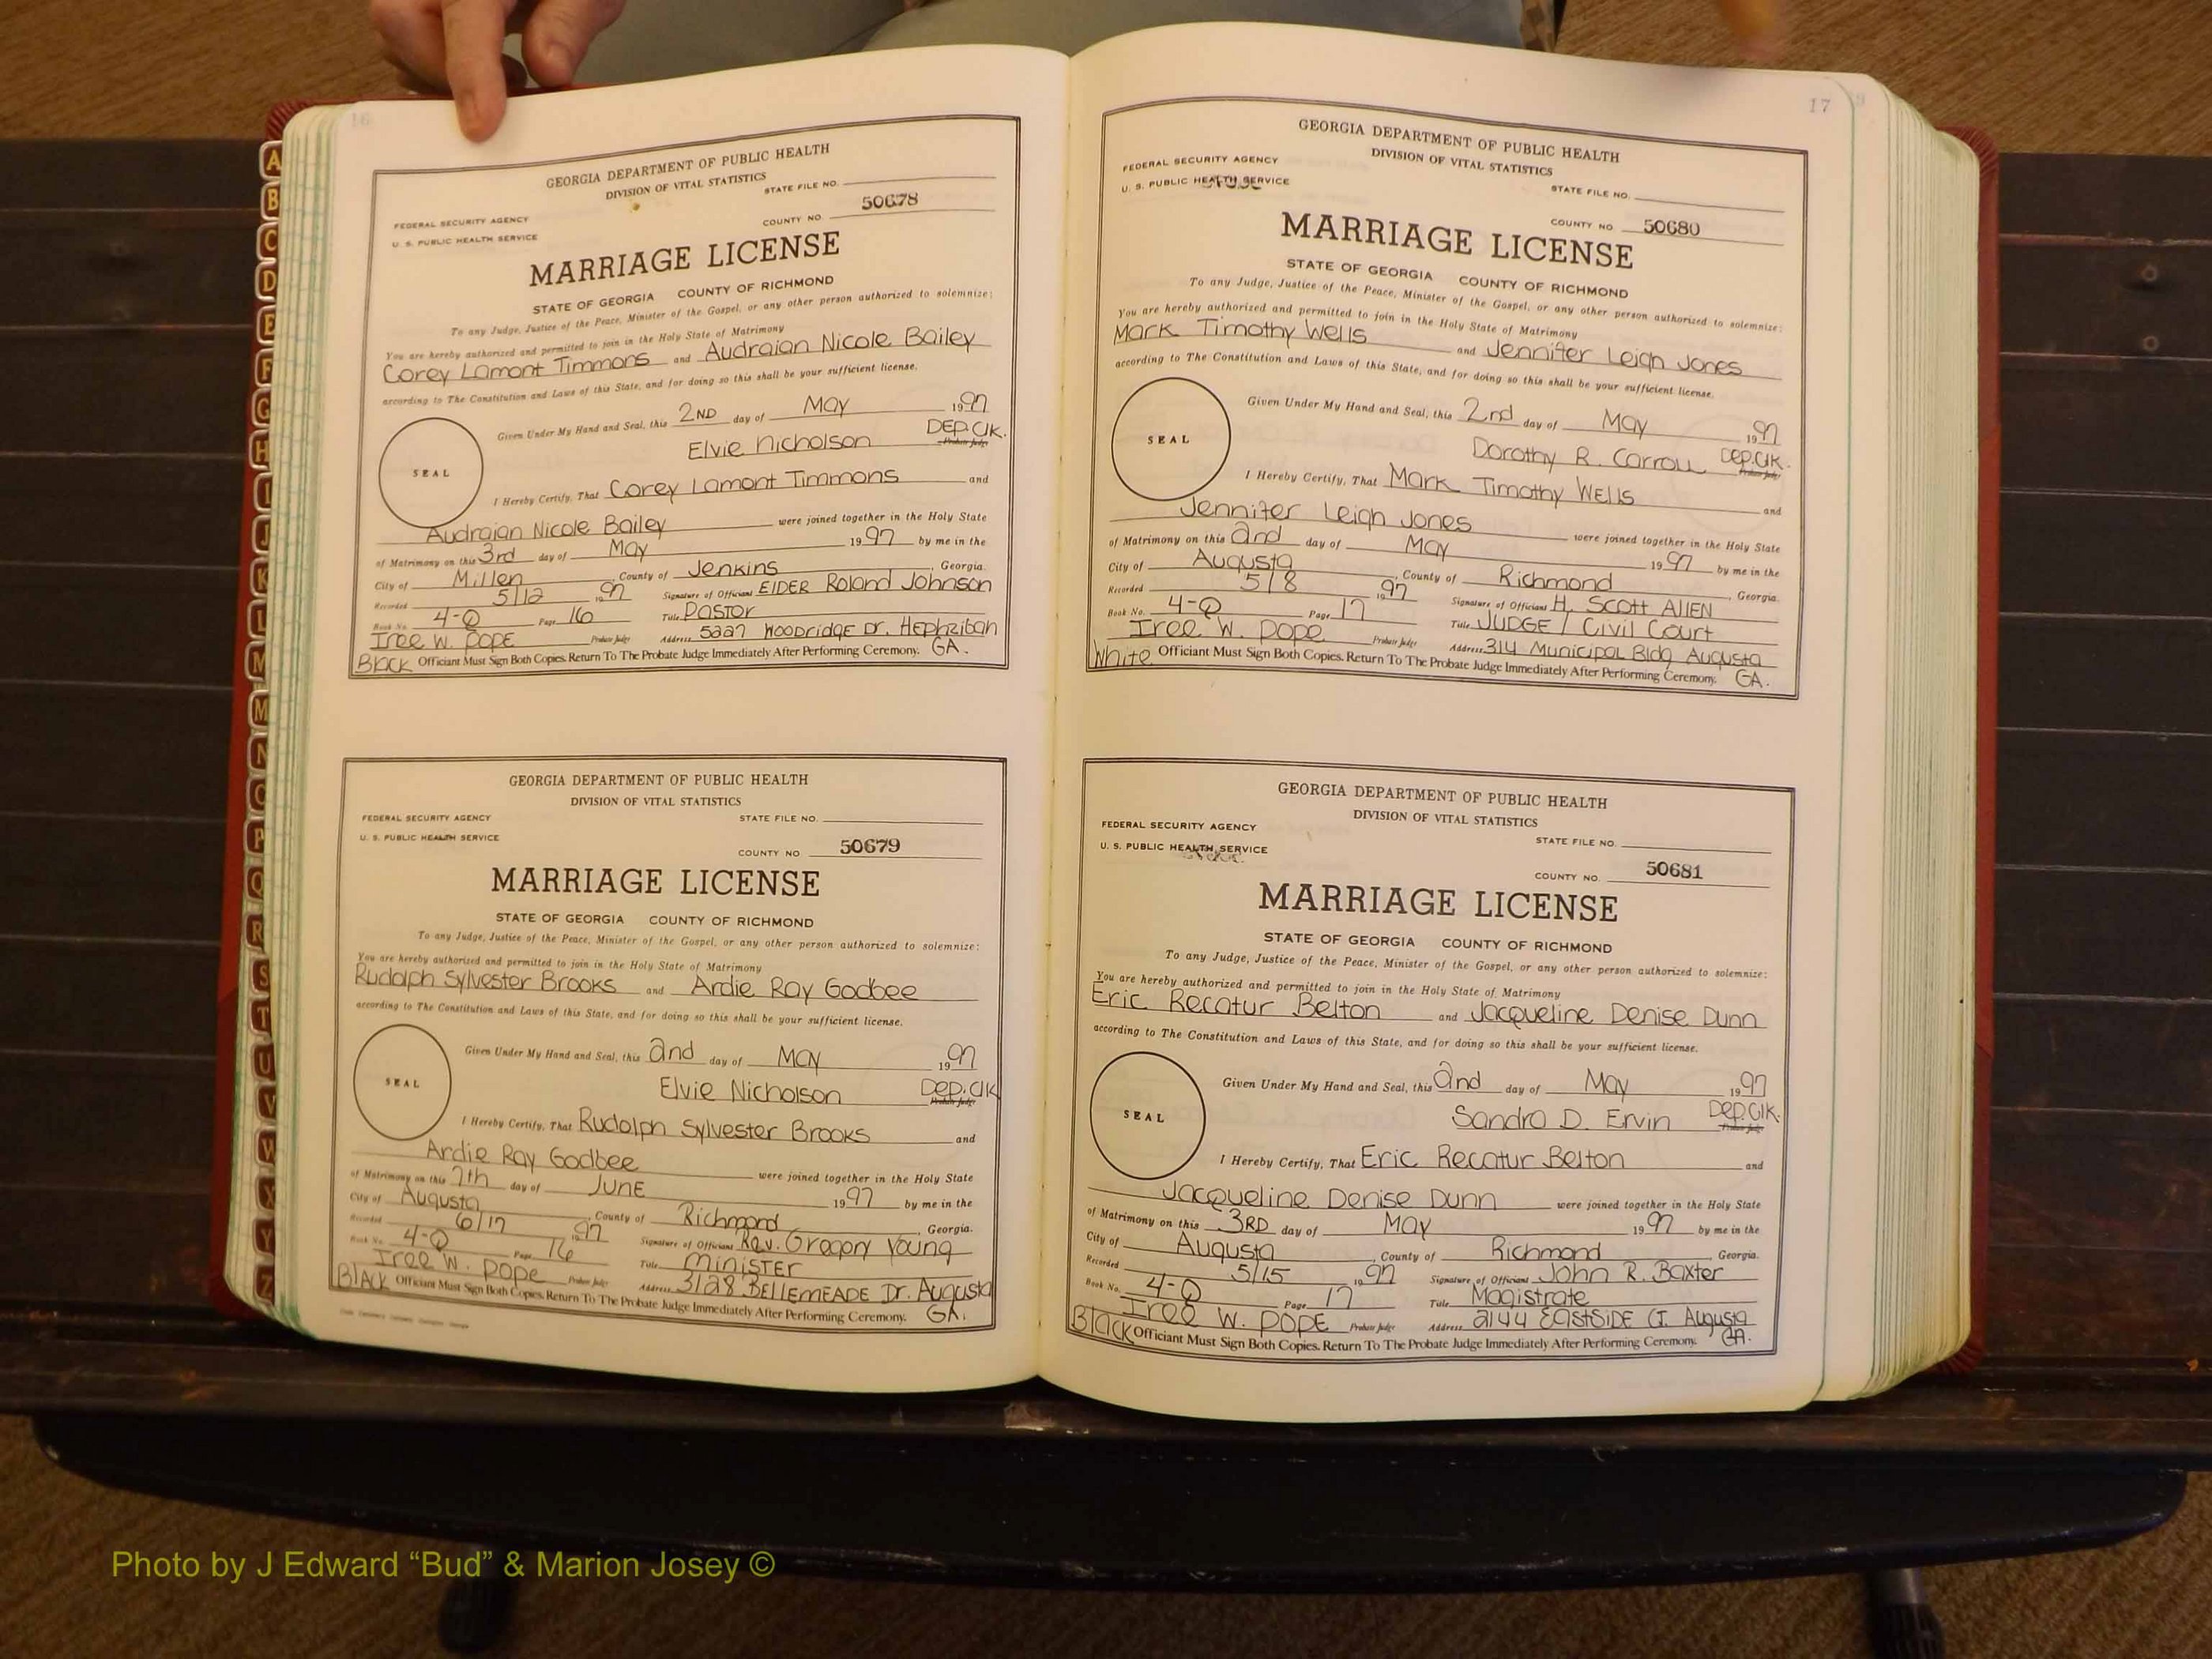 16
GEORGIA DEPARTMENT OF PUBLIC HEALTH
DIVISION OF VITAL STATISTICS
STATE FILE NO.
FEDERAL SECURITY AGENCY
U. S. PUBLIC HEALTH SERVICE
COUNTY NO. 50678
MARRIAGE LICENSE
STATE OF GEORGIA COUNTY OF RICHMOND
To any Judge, Justice of the Peace, Minister of the Gospel, or any other person authorized to solemnize:
You are hereby authorized and permitted to join in the Holy State of Matrimony
Corey Lamont Timmons and Audraian Nicole Bailey
according to The Constitution and Laws of this State, and for doing so this shall be your sufficient license.
Given Under My Hand and Seal, this 2ND day of May 1997
Elvie Nicholson DEP. Clk. Probate Judge
SEAL
I Hereby Certify, That Corey Lamont Timmons and
Audraian Nicole Bailey were joined together in the Holy State
of Matrimony on this 3rd day of May 1997 by me in the
City of Millen, County of Jenkins, Georgia.
Recorded 5/12 1997 Signature of Officiant ElDER Roland Johnson
Book No. 4-Q Page 16 Title Pastor
Iree W. Pope Probate Judge Address 5227 Woodridge Dr. Hephzibah
Black Officiant Must Sign Both Copies. Return To The Probate Judge Immediately After Performing Ceremony. GA.
GEORGIA DEPARTMENT OF PUBLIC HEALTH
DIVISION OF VITAL STATISTICS
FEDERAL SECURITY AGENCY STATE FILE NO.
U. S. PUBLIC HEALTH SERVICE
COUNTY NO 50679
MARRIAGE LICENSE
STATE OF GEORGIA COUNTY OF RICHMOND
To any Judge, Justice of the Peace, Minister of the Gospel, or any other person authorized to solemnize:
You are hereby authorized and permitted to join in the Holy State of Matrimony
Rudolph Sylvester Brooks and Ardie Ray Godbee
according to The Constitution and Laws of this State, and for doing so this shall be your sufficient license.
Given Under My Hand and Seal, this 2nd day of May 1997
Elvie Nicholson Dep. Clk Probate Judge
SEAL
I Hereby Certify, That Rudolph Sylvester Brooks and
Ardie Ray Godbee were joined together in the Holy State
of Matrimony on this 7th day of June 1997 by me in the
City of Augusta, County of Richmond, Georgia.
Recorded 6/17 1997 Signature of Officiant Rev. Gregory Young
Book No. 4-Q Page 16 Title Minister
Iree W. Pope Probate Judge Address 3128 Bellemeade Dr. Augusta
BLACK Officiant Must Sign Both Copies. Return To The Probate Judge Immediately After Performing Ceremony. GA.
17
GEORGIA DEPARTMENT OF PUBLIC HEALTH
DIVISION OF VITAL STATISTICS
FEDERAL SECURITY AGENCY
U. S. PUBLIC HEALTH SERVICE
STATE FILE NO.
COUNTY NO 50680
MARRIAGE LICENSE
STATE OF GEORGIA COUNTY OF RICHMOND
To any Judge, Justice of the Peace, Minister of the Gospel, or any other person authorized to solemnize:
You are hereby authorized and permitted to join in the Holy State of Matrimony
Mark Timothy Wells and Jennifer Leigh Jones
according to The Constitution and Laws of this State, and for doing so this shall be your sufficient license.
Given Under My Hand and Seal, this 2nd day of May 1997
Dorothy R. Carroll Dep. Clk. Probate Judge
SEAL
I Hereby Certify, That Mark Timothy Wells and
Jennifer Leigh Jones were joined together in the Holy State
of Matrimony on this 2nd day of May 1997 by me in the
City of Augusta, County of Richmond, Georgia.
Recorded 5/8 1997 Signature of Officiant H. Scott Allen
Book No. 4-Q Page 17 Title JUDGE / Civil Court
Iree W. Pope Probate Judge Address 314 Municipal Bldg Augusta
White Officiant Must Sign Both Copies. Return To The Probate Judge Immediately After Performing Ceremony. GA.
GEORGIA DEPARTMENT OF PUBLIC HEALTH
DIVISION OF VITAL STATISTICS
FEDERAL SECURITY AGENCY STATE FILE NO.
U. S. PUBLIC HEALTH SERVICE
COUNTY NO. 50681
MARRIAGE LICENSE
STATE OF GEORGIA COUNTY OF RICHMOND
To any Judge, Justice of the Peace, Minister of the Gospel, or any other person authorized to solemnize:
You are hereby authorized and permitted to join in the Holy State of Matrimony
Eric Recatur Belton and Jacqueline Denise Dunn
according to The Constitution and Laws of this State, and for doing so this shall be your sufficient license.
Given Under My Hand and Seal, this 2nd day of May 1997
Sandra D. Ervin Dep. Clk. Probate Judge
SEAL
I Hereby Certify, That Eric Recatur Belton and
Jacqueline Denise Dunn were joined together in the Holy State
of Matrimony on this 3RD day of May 1997 by me in the
City of Augusta, County of Richmond, Georgia.
Recorded 5/15 1997 Signature of Officiant John R. Baxter
Book No. 4-Q Page 17 Title Magistrate
Iree W. Pope Probate Judge Address 2144 Eastside Ct. Augusta
Black Officiant Must Sign Both Copies. Return To The Probate Judge Immediately After Performing Ceremony. GA.
A
B
C
D
E
F
G
H
I
J
K
L
M
M
N
O
P
Q
R
S
T
U
V
W
X
Y
Z
Photo by J Edward “Bud” & Marion Josey ©